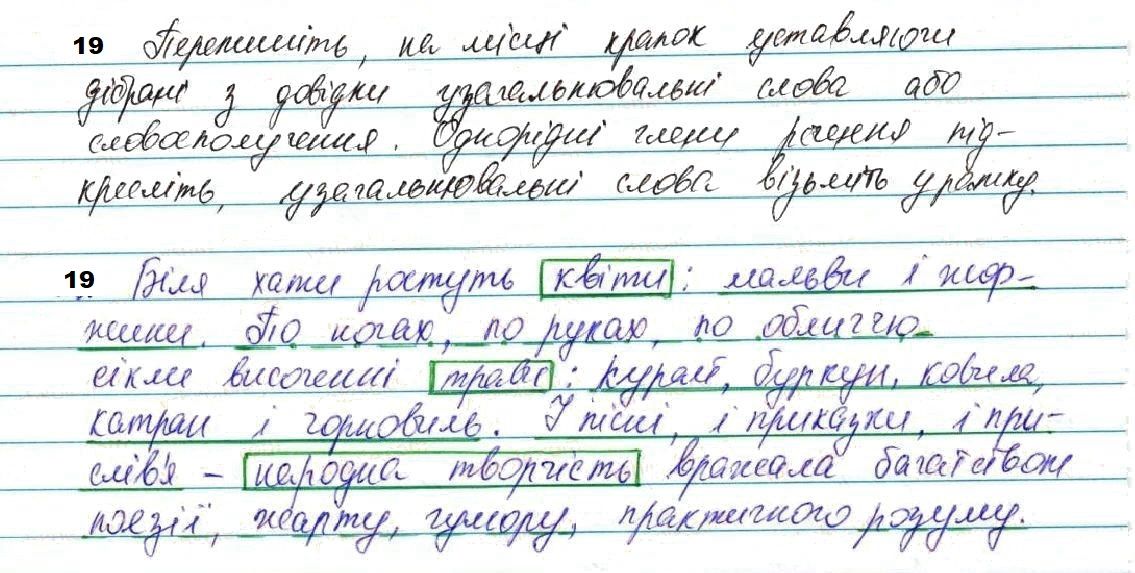 19 Перепишіть, на місці крапок уставляючи
дібрані з довідки узагальнювальні слова або
словосполучення. Однорідні члени речення під-
кресліть, узагальнювальні слова візьміть у рамку.
19 Біля хати ростуть квіти: мальви і жор-
жини. По ногах, по руках, по обличчю
сікли височенні трави: курай, буркун, ковила,
катран і чорновиль. І пісні, і приказки, і при-
слів'я – народна творчість вражала багатством
поезії, жарту, гумору, практичного розуму.